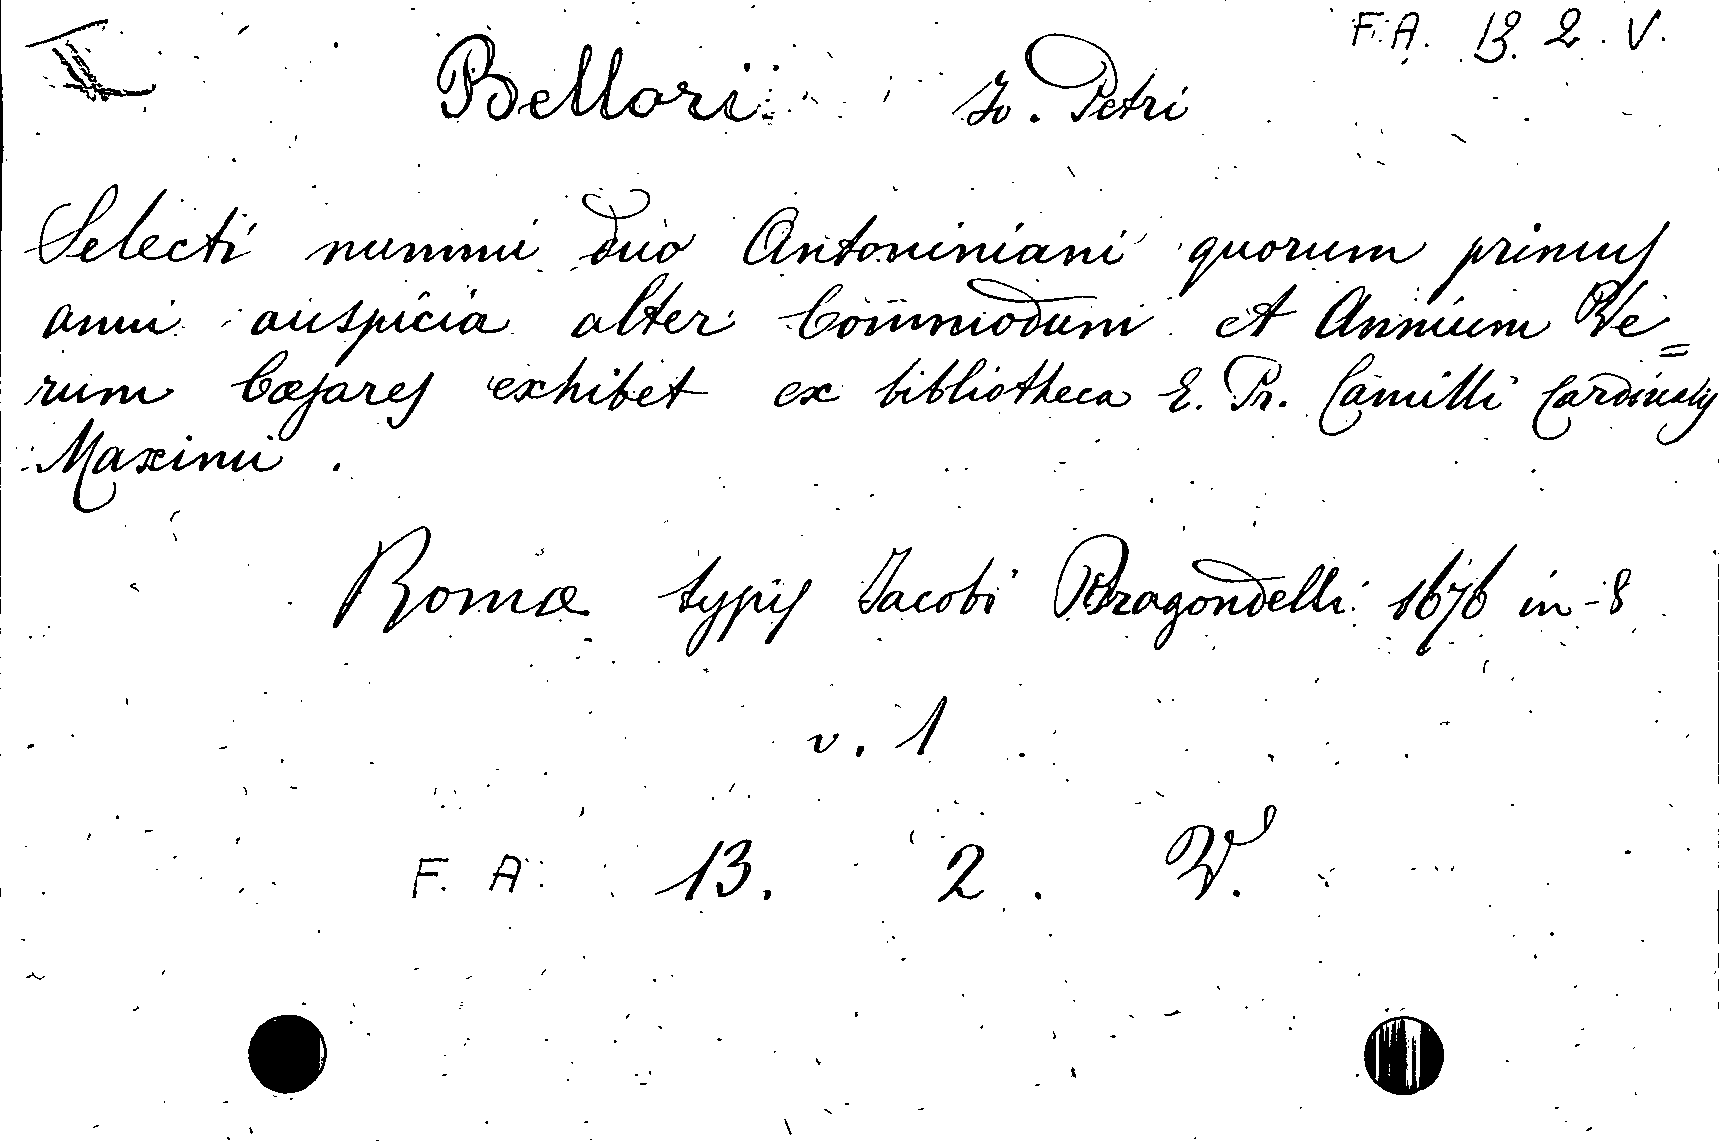 F. A. 13. 2. V.
Bellori Jo. Petri
Selecti nummi duo Antoniniani quorum primus
anni auspicia alter Commodum et Annium Ve=
rum Cæsares exhibet ex bibliotheca E. Pr. Camilli Cardinalis
Maximi.
Romæ typis Jacobi Dragondelli 1676 in-8
v. 1
F. A. 13. 2. V.